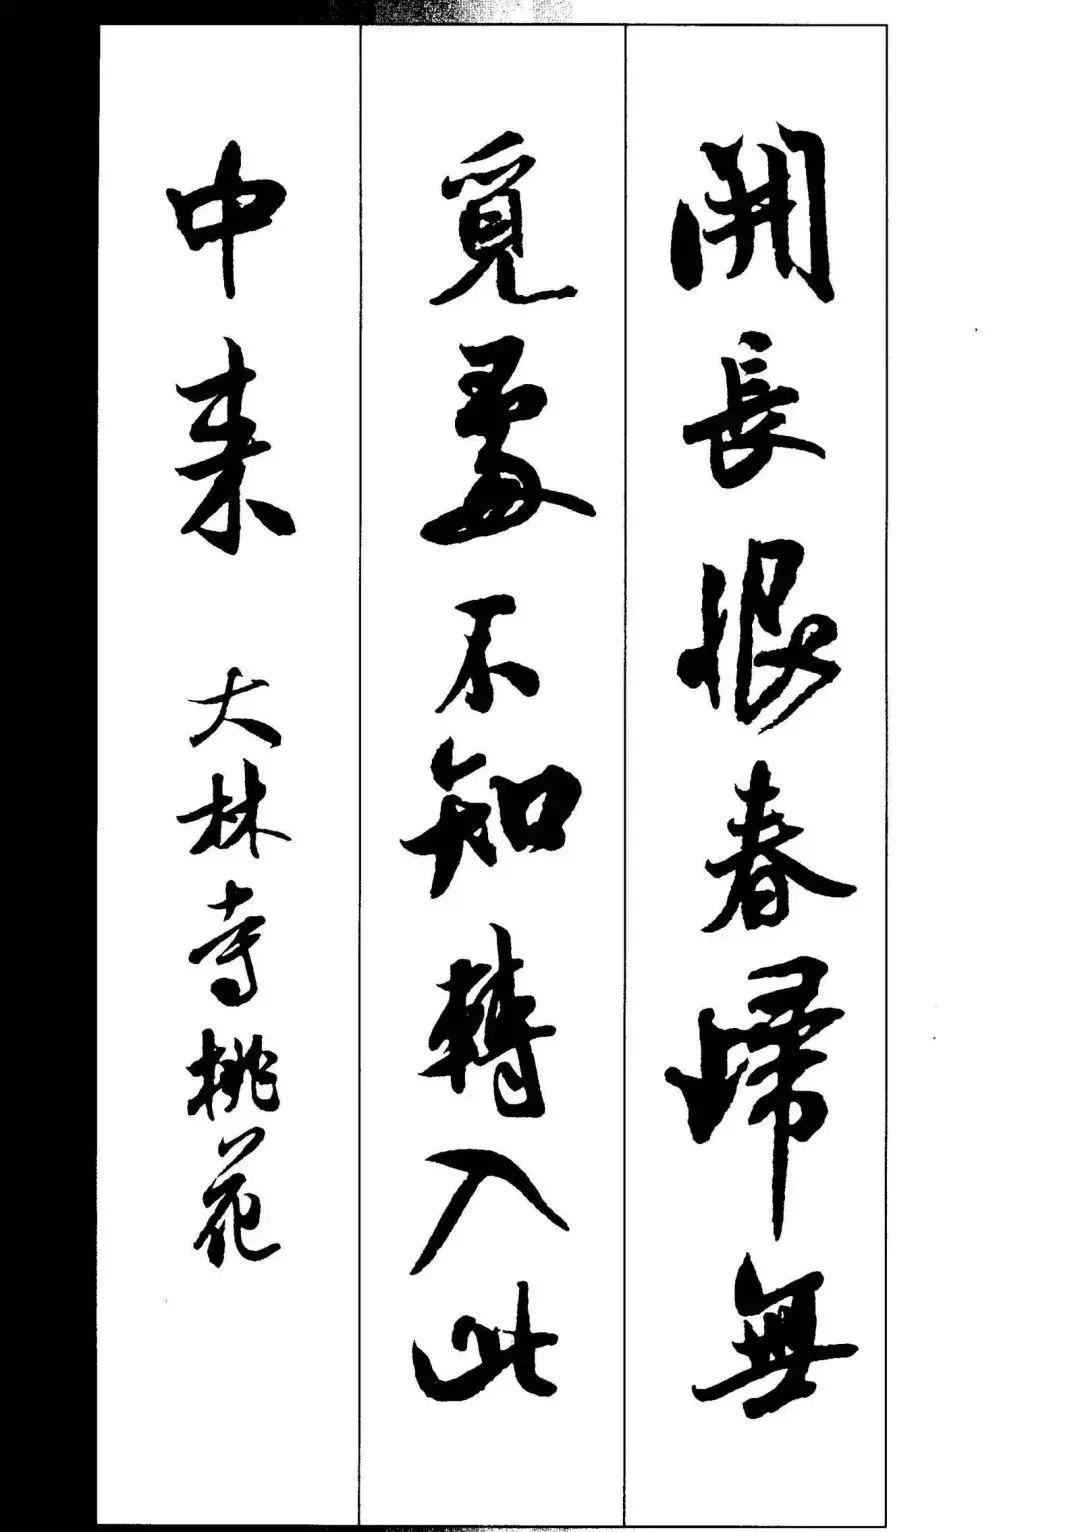 開長恨春歸無
覓處不知轉入此
中来 大林寺桃花